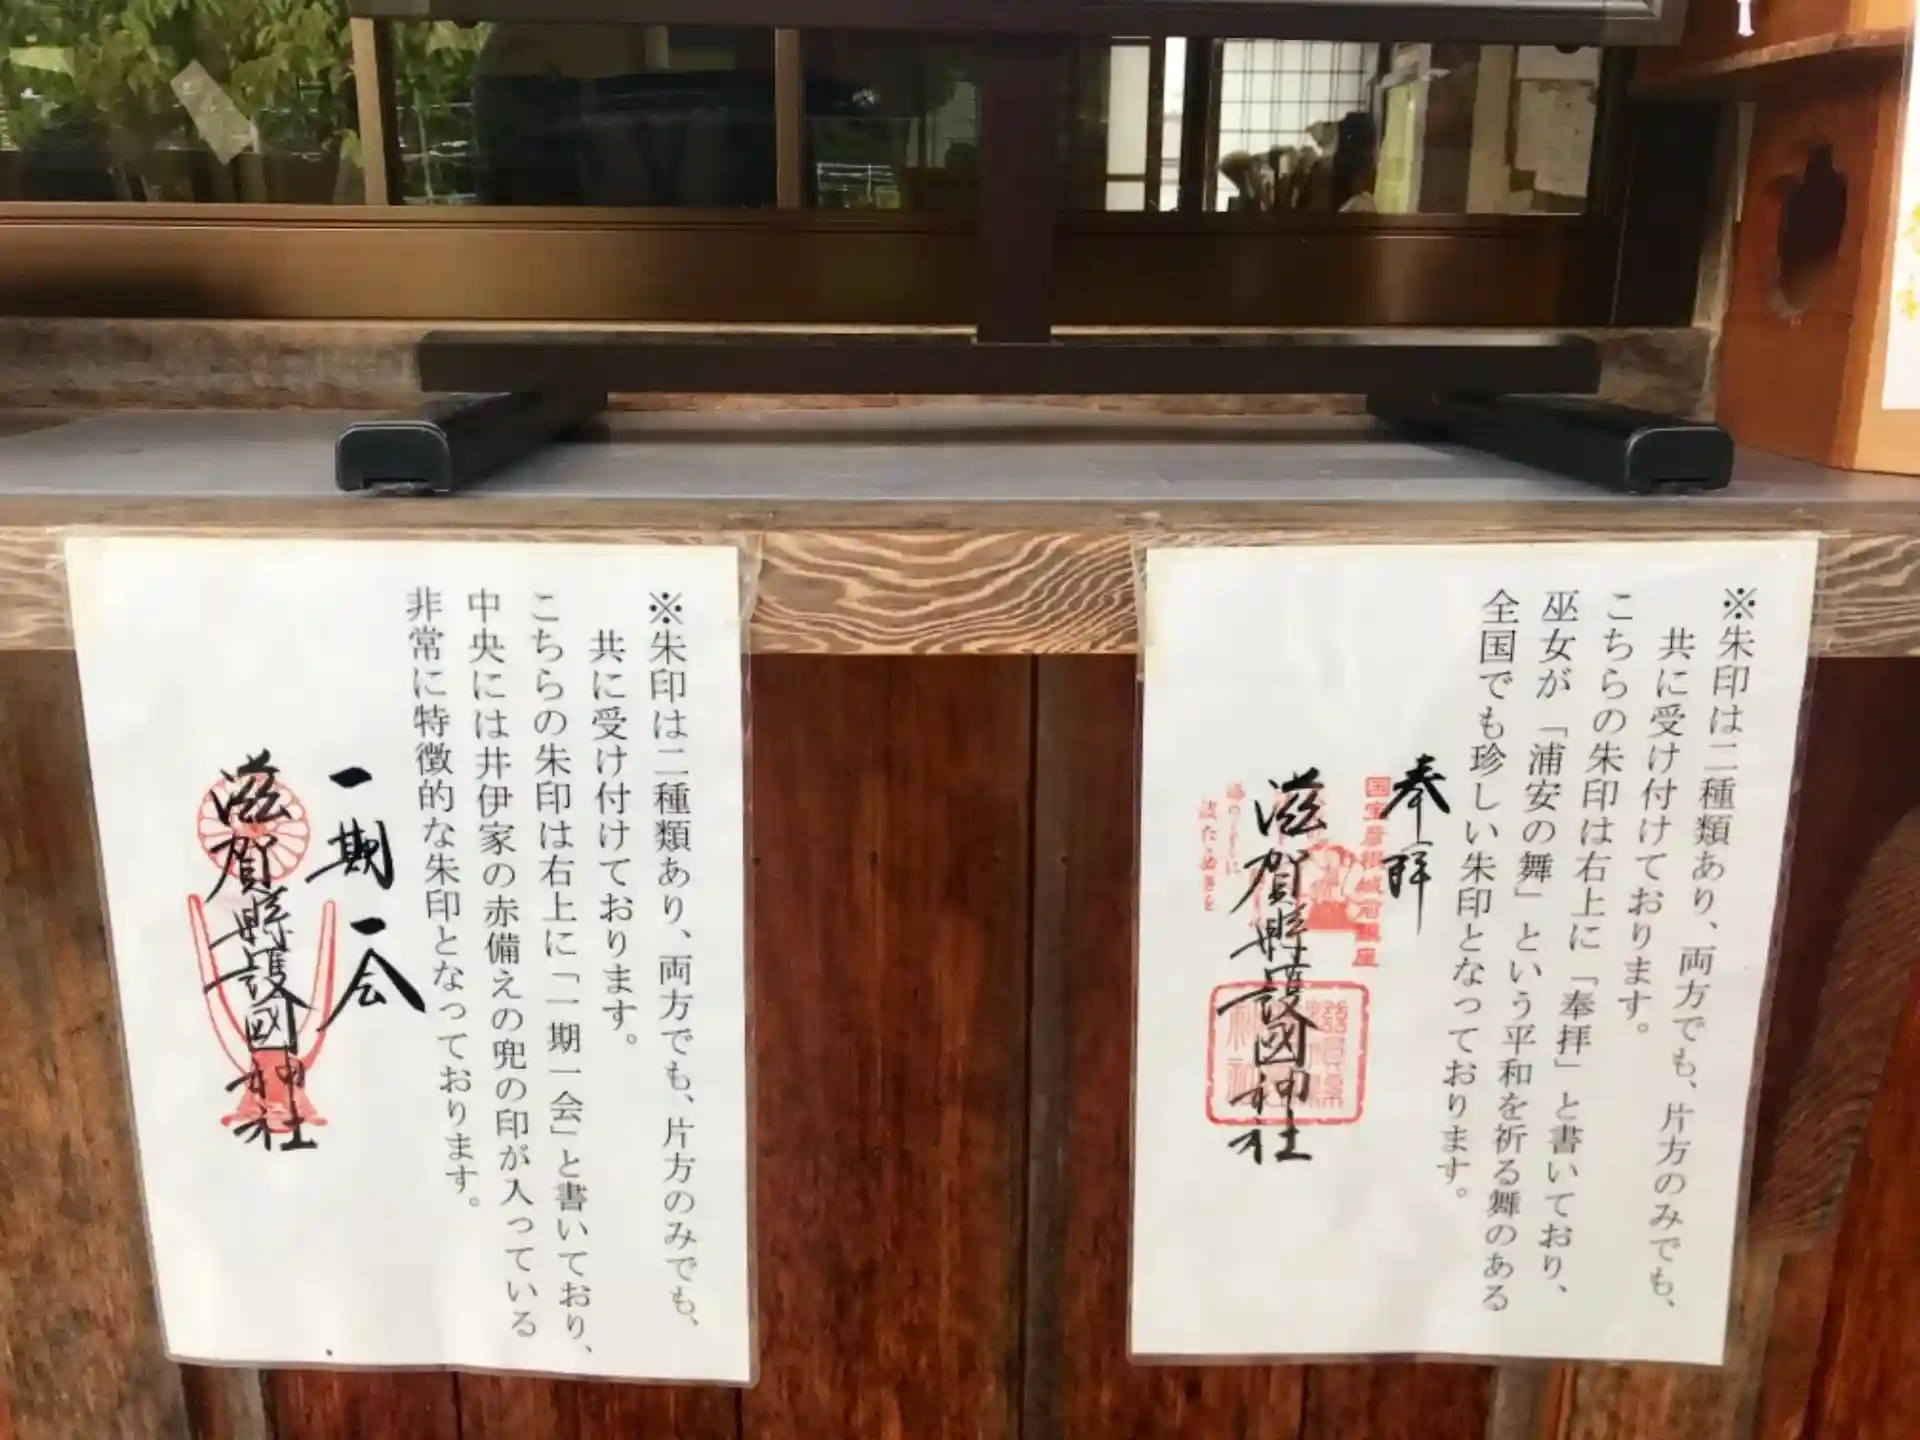 ※朱印は二種類あり、両方でも、片方のみでも、
共に受け付けております。
こちらの朱印は右上に「奉拝」と書いており、
巫女が「浦安の舞」という平和を祈る舞のある
全国でも珍しい朱印となっております。
奉拝
国宝彦根城前鎮座
滋賀縣護國神社
※朱印は二種類あり、両方でも、片方のみでも、
共に受け付けております。
こちらの朱印は右上に「一期一会」と書いており、
中央には井伊家の赤備えの兜の印が入っている
非常に特徴的な朱印となっております。
一期一会
滋賀縣護國神社